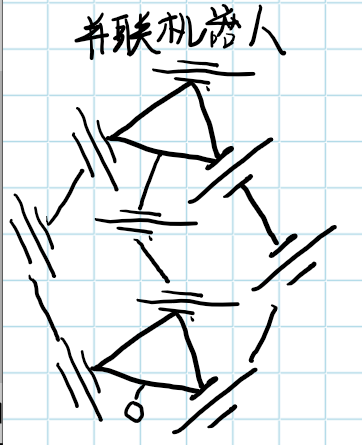 并联机器人